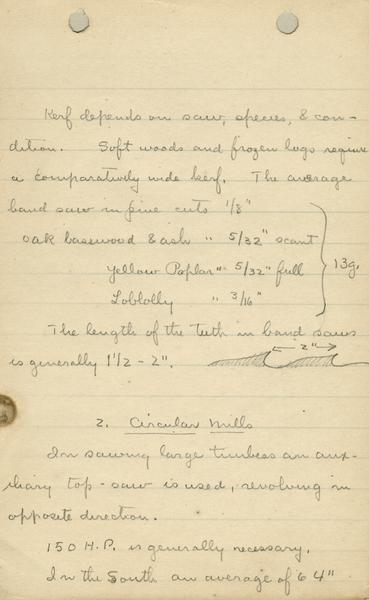 Kerf depends on saw, species, & con-
dition. Soft woods and frozen logs require
a comparatively wide kerf. The average
band saw in pine cuts 1/8"
oak basswood & ash " 5/32" scant
Yellow Poplar " " 5/32" full
13g.
Loblolly " 3/16"
The length of the teeth in band saws
is generally 1 1/2 - 2". 2"
2. Circular Mills
In sawing large timbers an aux-
iliary top-saw is used, revolving in
opposite direction.
150 H.P. is generally necessary.
In the South an average of 64"